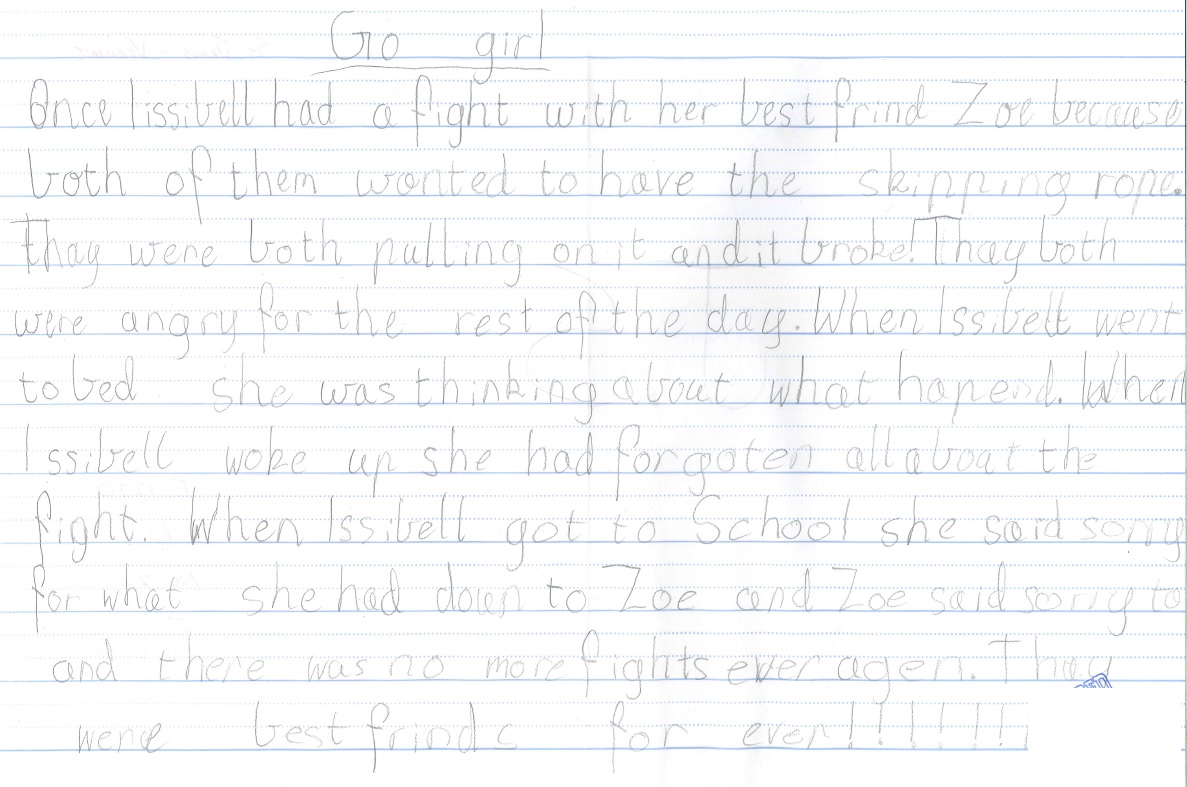 Go girl
Once Issibell had a fight with her best frind Zoe because
both of them wonted to have the skipping rope.
Thay were both pulling on it and it broke! Thay both
were angry for the rest of the day. When Issibell went
to bed she was thinking about what hapend. When
Issibell woke up she had forgoten all about the
fight. When Issibell got to School she said sorry
for what she had doun to Zoe and Zoe said sorry to
and there was no more fights ever agen. Thay
were best frinds for ever!!!!!!!